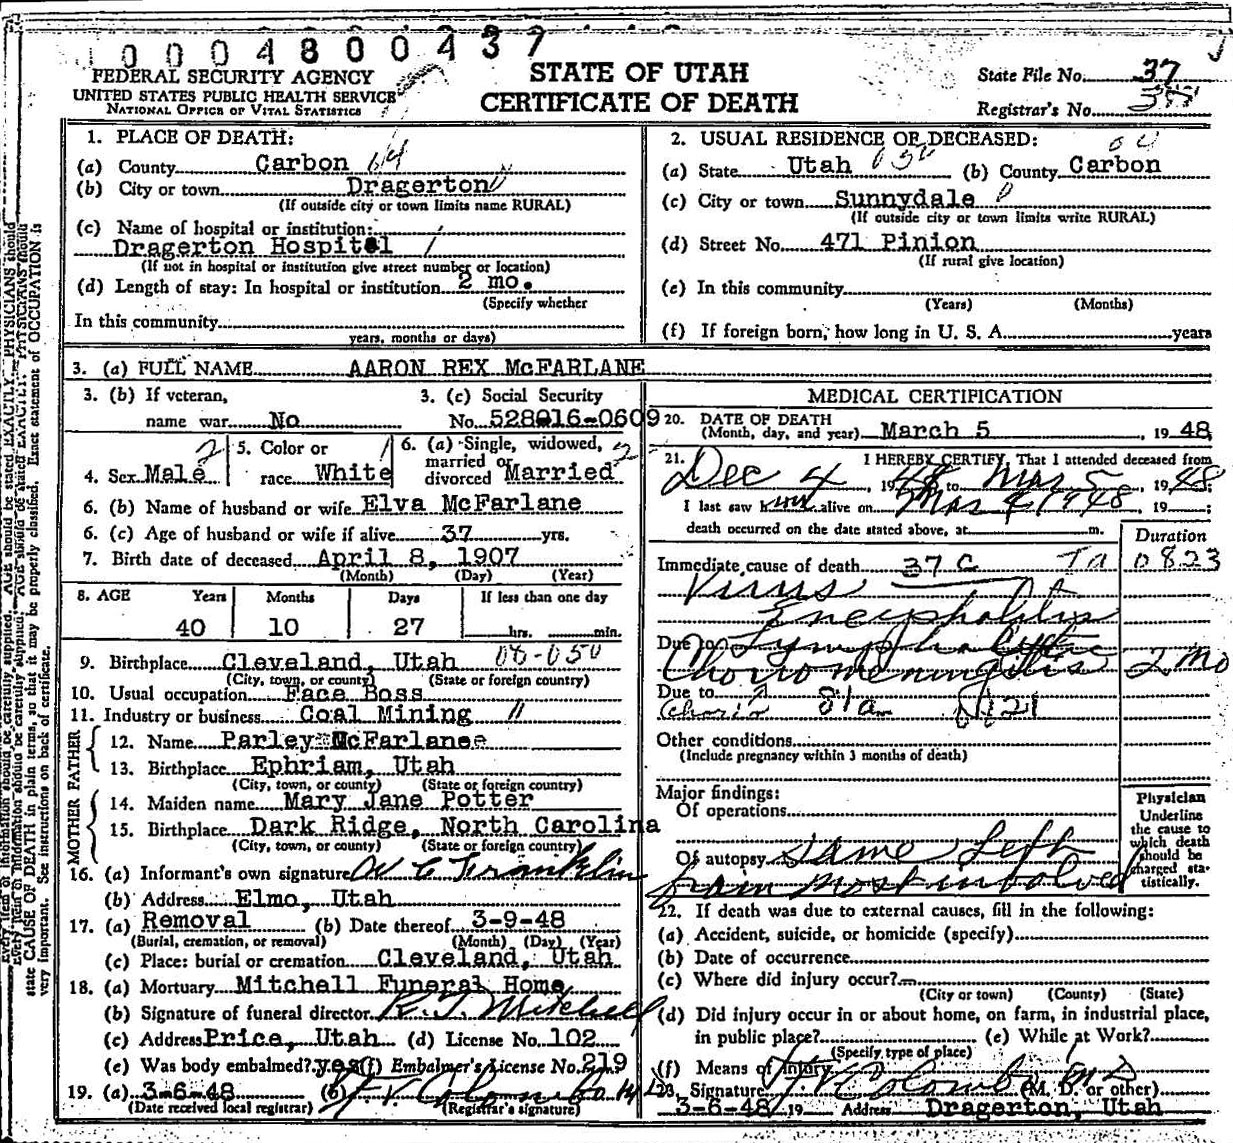 0004800437
FEDERAL SECURITY AGENCY
UNITED STATES PUBLIC HEALTH SERVICE
NATIONAL OFFICE OF VITAL STATISTICS
STATE OF UTAH
CERTIFICATE OF DEATH
State File No. 37
Registrar's No.
1. PLACE OF DEATH:
(a) County Carbon
(b) City or town Dragerton
(If outside city or town limits name RURAL)
(c) Name of hospital or institution:
Dragerton Hospital
(If not in hospital or institution give street number or location)
(d) Length of stay: In hospital or institution 2 mo.
(Specify whether
In this community
years, months or days)
2. USUAL RESIDENCE OF DECEASED:
(a) State Utah (b) County Carbon
(c) City or town Sunnydale
(If outside city or town limits write RURAL)
(d) Street No. 471 Pinion
(If rural give location)
(e) In this community
(Years) (Months)
(f) If foreign born, how long in U. S. A. years
3. (a) FULL NAME AARON REX McFARLANE
3. (b) If veteran, 3. (c) Social Security
name war No No. 528-16-0609
4. Sex Male 5. Color or race White 6. (a) Single, widowed, married or divorced Married
6. (b) Name of husband or wife Elva McFarlane
6. (c) Age of husband or wife if alive 37 yrs.
7. Birth date of deceased April 8, 1907
(Month) (Day) (Year)
8. AGE Years Months Days If less than one day
40 10 27 hrs. min.
9. Birthplace Cleveland, Utah 06-050
(City, town, or county) (State or foreign country)
10. Usual occupation Face Boss
11. Industry or business Coal Mining
FATHER
12. Name Parley McFarlane
13. Birthplace Ephriam, Utah
(City, town, or county) (State or foreign country)
MOTHER
14. Maiden name Mary Jane Potter
15. Birthplace Dark Ridge, North Carolina
(City, town, or county) (State or foreign country)
16. (a) Informant's own signature W C Franklin
(b) Address Elmo, Utah
17. (a) Removal (b) Date thereof 3-9-48
(Burial, cremation, or removal) (Month) (Day) (Year)
(c) Place: burial or cremation Cleveland, Utah
18. (a) Mortuary Mitchell Funeral Home
(b) Signature of funeral director R. T. Mitchell
(c) Address Price, Utah (d) License No. 102
(e) Was body embalmed? yes (f) Embalmer's License No. 219
19. (a) 3-6-48 (b) H V Colombo M
(Date received local registrar) (Registrar's signature)
MEDICAL CERTIFICATION
20. DATE OF DEATH
(Month, day, and year) March 5, 1948
21. I HEREBY CERTIFY, That I attended deceased from
Dec 4, 19 to Mar 5, 1948;
I last saw him alive on Mar 4 1948, 19 ;
death occurred on the date stated above, at m.
Duration
Immediate cause of death 37c 0823
Virus
Encephalitis
Due to Lymphocytic
Choriomeningitis 2 mo
Due to
81a
Other conditions
(Include pregnancy within 3 months of death)
Major findings:
Of operations
Of autopsy Same Left
brain most involved
Physician
Underline
the cause to
which death
should be
charged sta-
tistically.
22. If death was due to external causes, fill in the following:
(a) Accident, suicide, or homicide (specify)
(b) Date of occurrence
(c) Where did injury occur?
(City or town) (County) (State)
(d) Did injury occur in or about home, on farm, in industrial place,
in public place? (e) While at Work?
(Specify type of place)
(f) Means of Injury
23. Signature H V Colombo MD (M. D. or other)
3-6-48 19 Address Dragerton, Utah